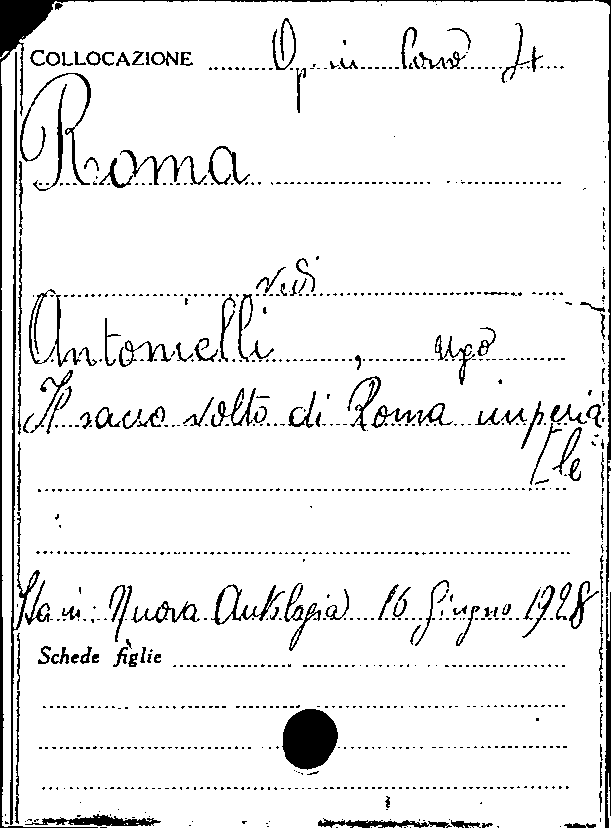 COLLOCAZIONE Op. in Corso
Roma
vedi
Antonielli, Ugo
Il sacro volto di Roma imperia
[le
Sta in: Nuova Antologia 16 Giugno 1928
Schede figlie